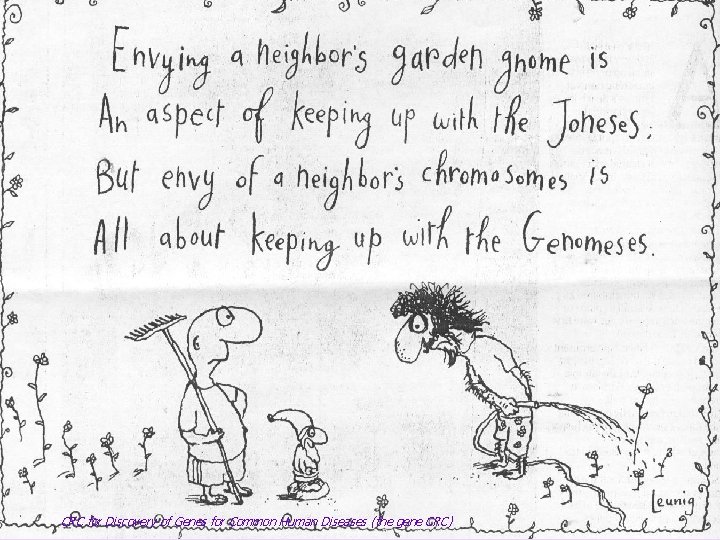 Envying a neighbor's garden gnome is
An aspect of keeping up with the Joneses;
But envy of a neighbor's chromosomes is
All about keeping up with the Genomeses.
Leunig
CRC for Discovery of Genes for Common Human Diseases (the gene CRC)